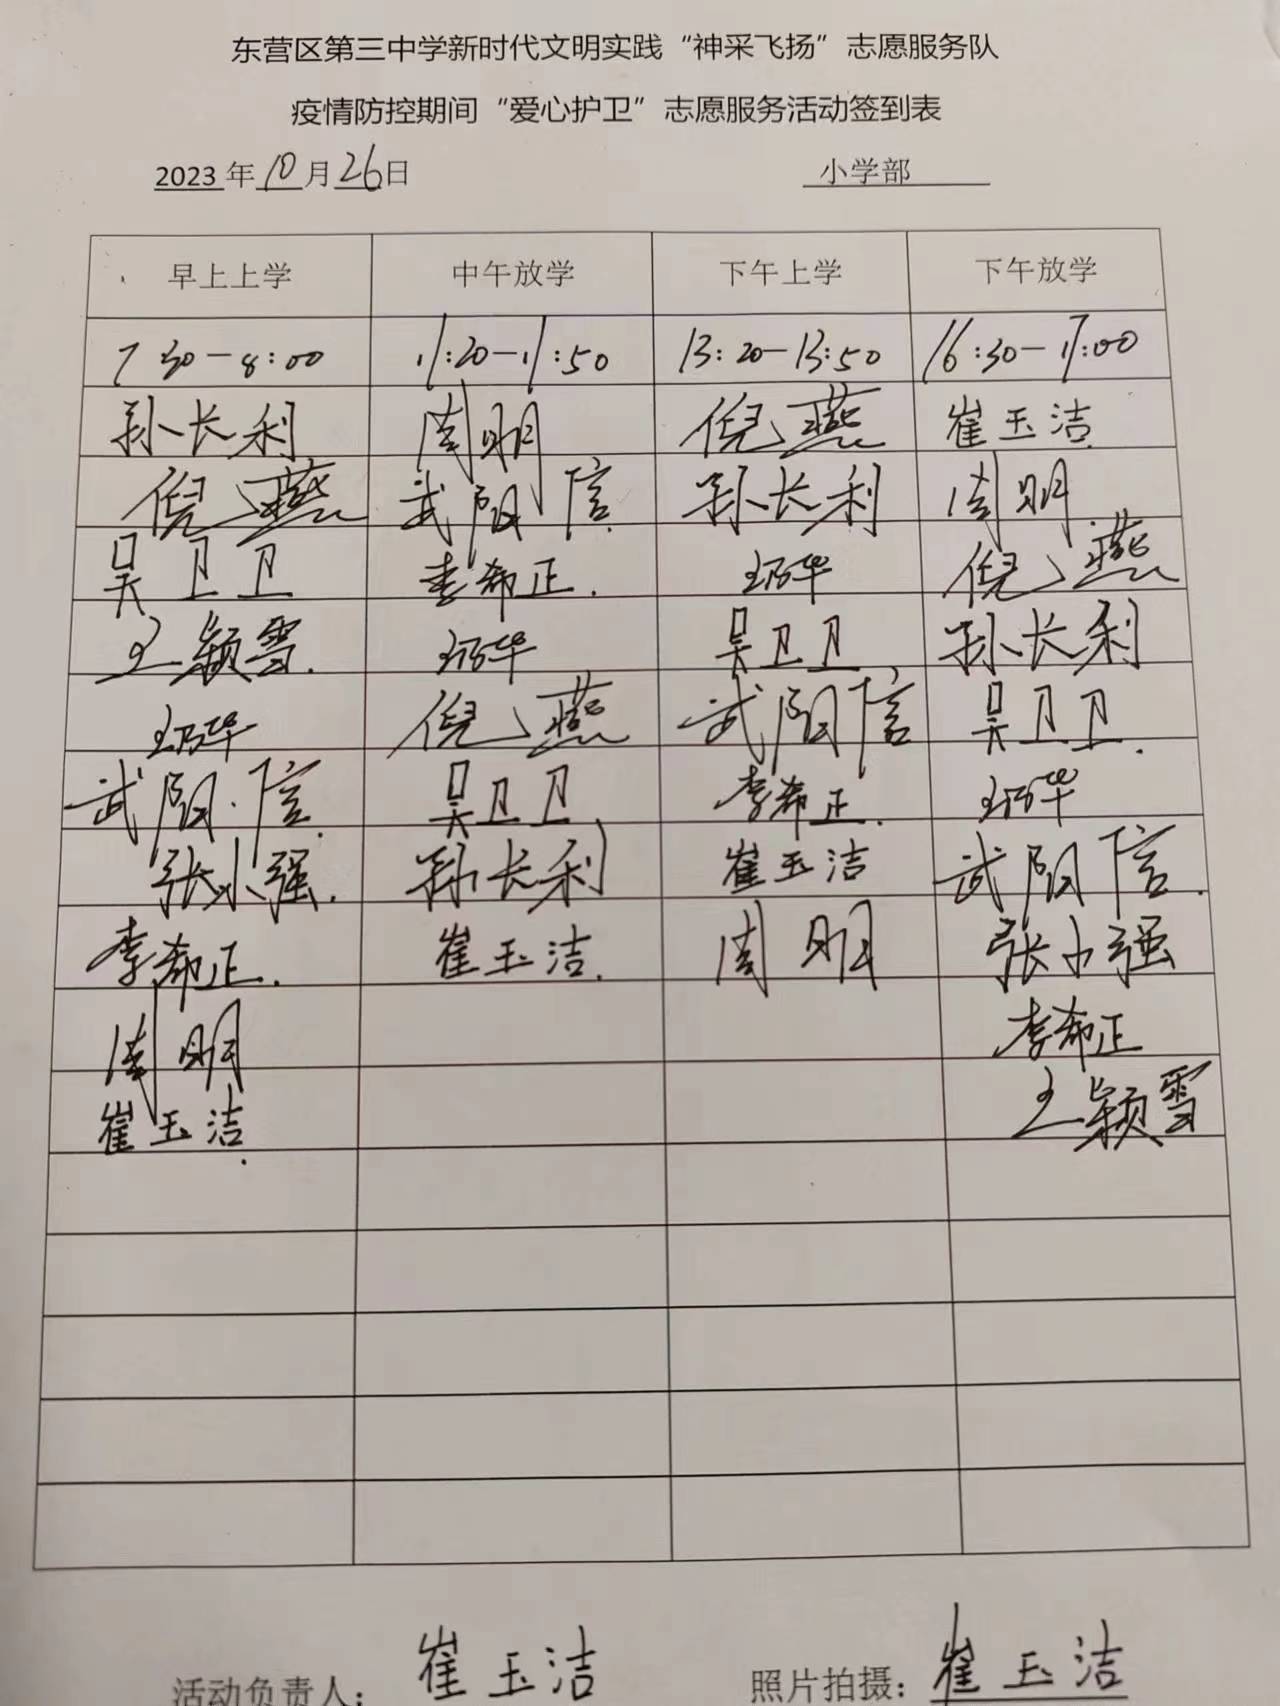 东营区第三中学新时代文明实践“神采飞扬”志愿服务队
疫情防控期间“爱心护卫”志愿服务活动签到表
2023年10月26日 小学部
早上上学 中午放学 下午上学 下午放学
7 30-8:00 11:20-11:50 13:20-13:50 16:30-17:00
孙长利 周明 倪燕 崔玉洁
倪燕 武阳信 孙长利 周明
吴卫卫 李希正 倪燕
王颖雪 吴卫卫 孙长利
倪燕 武阳信 吴卫卫
武阳信 吴卫卫 李希正
张小强 孙长利 崔玉洁 武阳信
李希正 崔玉洁 周明 张小强
周明 李希正
崔玉洁 王颖雪
活动负责人：崔玉洁 照片拍摄：崔玉洁